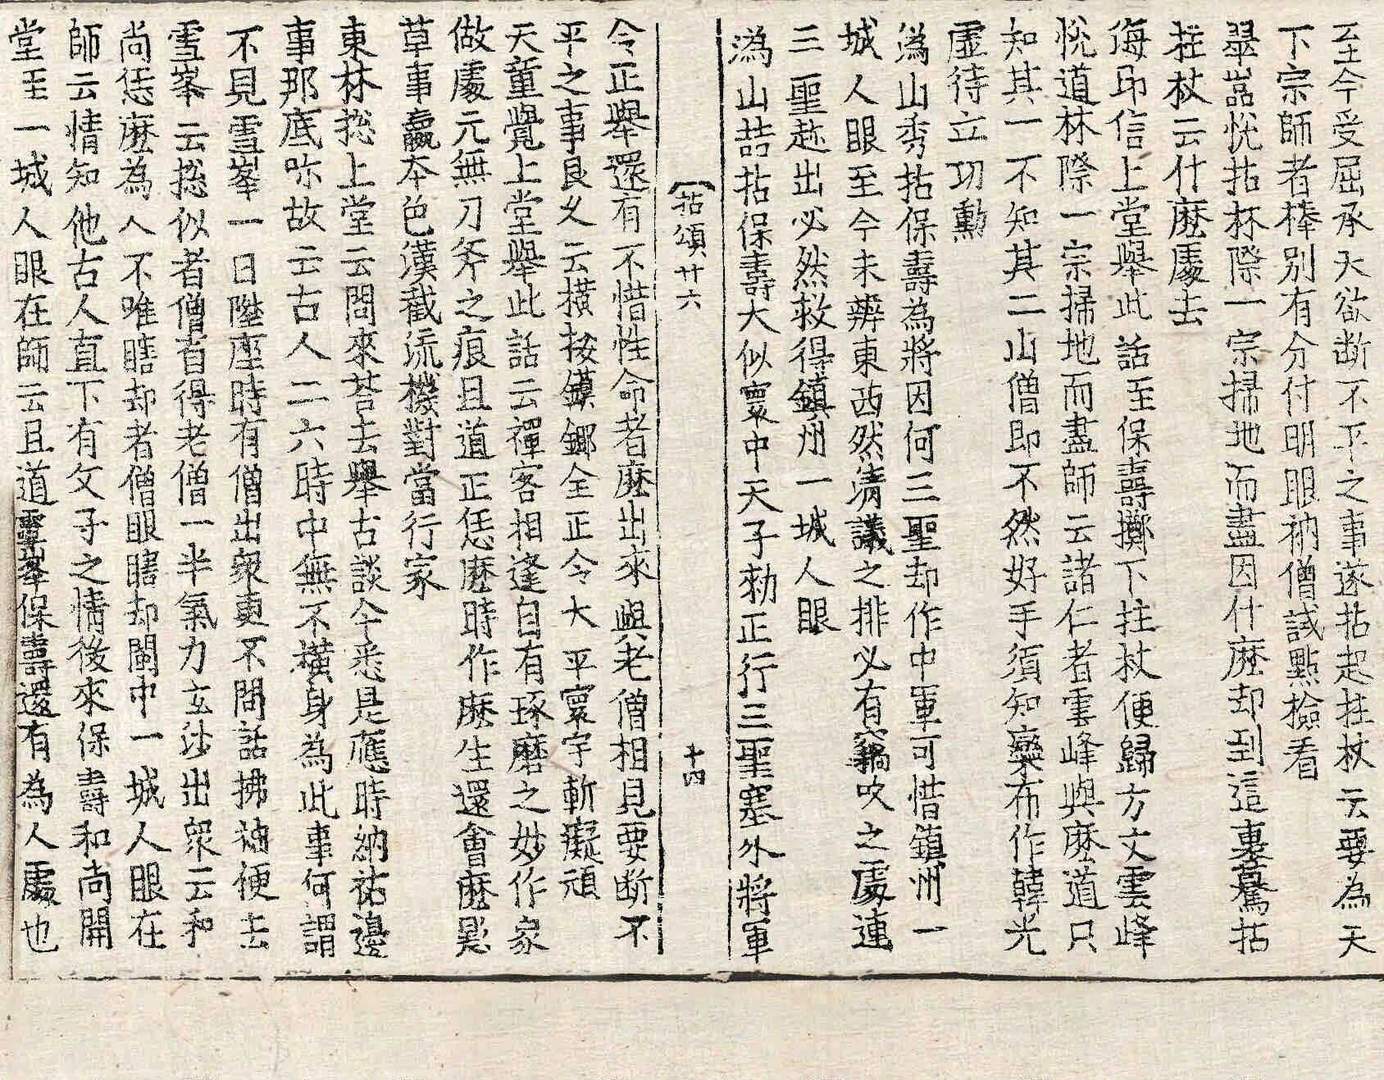 至今受屈承天欲断不平之事遂拈起拄杖云要為天
下宗師者棒別有分付明眼衲僧試點檢看
翠嵓悅拈林際一宗掃地而盡因什麽却到這裏驀拈
拄杖云什麽處去
海印信上堂舉此話至保壽擲下拄杖便歸方丈雲峰
悅道林際一宗掃地而盡師云諸仁者雲峰與麽道只
知其一不知其二山僧即不然好手須知欒布作韓光
虛待立功勳
溈山秀拈保壽為將因何三聖却作中軍可惜鎮州一
城人眼至今未辨東西然情議之排必有竊吹之處連
三聖趂出必然救得鎮州一城人眼
溈山喆拈保壽大似寰中天子勑正行三聖塞外將軍
拈頌廿六
十四
令正舉還有不惜性命者麽出來與老僧相見要断不
平之事良久云橫按鏌鎁全正令大平寰宇斬癡頑
天童覺上堂舉此話云禪客相逢自有琢磨之妙作家
做處元無刀斧之痕且道正恁麽時作麽生還會麽影
草事贏本色漢截流機對當行家
東林捴上堂云問來荅去舉古談今悉是應時納祜邊
事那底吥故云古人二六時中無不橫身為此事何謂
不見雪峯一日陞座時有僧出衆更不問話拂袖便去
雪峯云捴似者僧省得老僧一半氣力玄沙出衆云和
尚恁麽為人不唯瞎却者僧眼瞎却閩中一城人眼在
師云情知他古人直下有父子之情後來保壽和尚開
堂至一城人眼在師云且道雪峯保壽還有為人處也